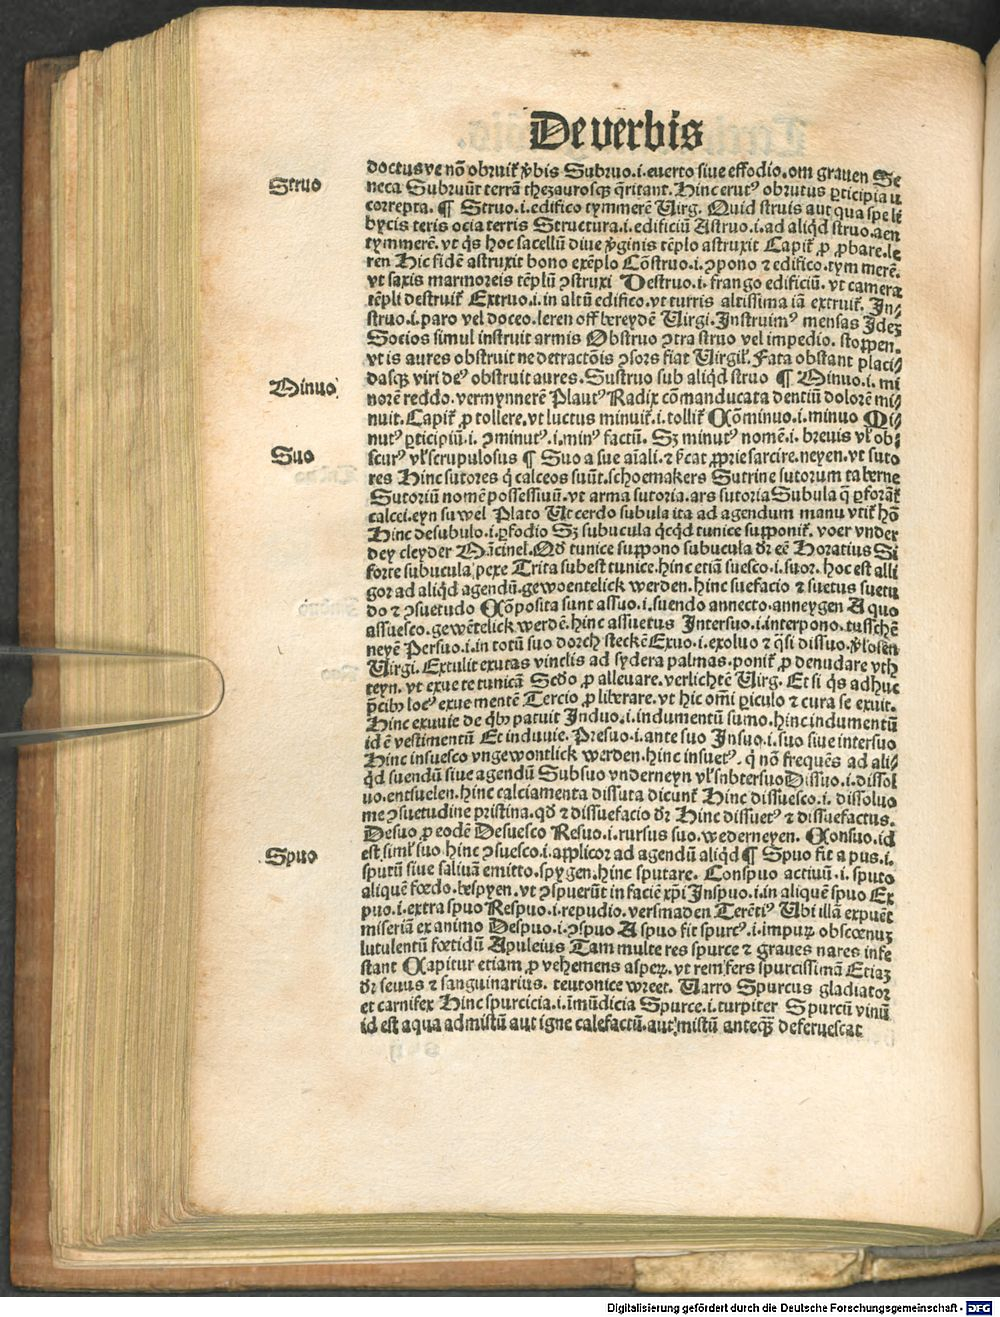 De verbis
doctus ve nō obruiť ỽbis Subruo .i. euerto siue effodio. om grauen Se
Struo
neca Subruūt terrā thezaurosqꝫ q̄ritant. Hinc erutꝰ obrutus ꝑticipia u
correpta. ¶ Struo .i. edifico tymmerē Virg. Quid struis aut qua spe li
bycis teris ocia terris Structura .i. edificiū Astruo .i. ad aliq̄d struo. aen
tymmerē. vt q̄s hoc sacellū diue ỽginis tēplo astruxit Capiť ꝓ ꝓbare. le
ren Hic fidē astruxit bono exēplo Cōstruo .i. ꝯpono ⁊ edifico. tym merē.
vt saxis marmoreis tēplū ꝯstruxi Destruo .i. frango edificiū. vt camera
tēpli destruiť Extruo .i. in altū edifico. vt turris altissima iā extruiť. In⸗
struo .i. paro vel doceo. leren off bereydē Virgi. Instruimꝰ mensas Ideꝫ
Socios simul instruit armis Obstruo ꝯtra struo vel impedio. stoppen.
vt is aures obstruit ne detractōis ꝯsors fiat Virgiľ. Fata obstant placi⸗
dasqꝫ viri deꝰ obstruit aures. Sustruo sub aliq̄d struo ¶ Minuo .i. mi
Minuo
norē reddo. vermynnerē Plautꝰ Radix cōmanducata dentiū dolorē mi⸗
nuit. Capiť ꝓ tollere. vt luctus minuiť .i. tolliť Cōminuo .i. minuo Mi⸗
nutꝰ ꝑticipiū .i. ꝯminutꝰ .i. minꝰ factū. Sꝫ minutꝰ nomē .i. breuis vľ ob⸗
Suo
scurꝰ vľ scrupulosus ¶ Suo a sue aīali. ⁊ ẜcat ꝓprie sarcire. neyen. vt suto
res Hinc sutores q̄ calceos suūt. schoemakers Sutrine sutorum taberne
Sutoriū nomē possessiuū. vt arma sutoria. ars sutoria Subula q̄ ꝑforāť
calcei. eyn suwel Plato Vt cerdo subula ita ad agendum manu vtiť hō
Hinc desubulo .i. ꝑfodio Sꝫ subucula q̄cq̄d tunice supponiť. voer vnder
dey cleyder Mācinel. Qđ tunice suppono subucula đr eē Horatius Si
forte subucula pexe Trita subest tunice. hinc etiā suesco .i. suor. hoc est alli
gor ad aliq̄d agendū. gewoentelick werden. hinc suefacio ⁊ suetus suetu
do ⁊ ꝯsuetudo Cōposita sunt assuo .i. suendo annecto. anneygen A quo
assuesco. gewētelick werdē. hinc assuetus Intersuo .i. interpono. tusschē
neyē Persuo .i. in totū suo dorch steckē Exuo .i. exoluo ⁊ q̄si dissuo. ỽlosen
Virgi. Extulit exutas vinclis ad sydera palmas. poniť ꝓ denudare vth
teyn. vt exue te tunicā Scđo ꝓ alleuare. verlichtē Virg. Et si q̄s adhuc
p̄cibꝰ locꝰ exue mentē Tercio ꝓ liberare. vt hic om̄i ꝑiculo ⁊ cura se exuit.
Hinc exuuie de q̄bꝰ patuit Induo .i. indumentū sumo. hinc indumentū
id ē vestimentū Et induuie. Presuo .i. ante suo Insuo .i. suo siue intersuo
Hinc insuesco vngewontlick werden. hinc insuetꝰ. q̄ nō frequēs ad ali⸗
q̄d suendū siue agendū Subsuo vnderneyn vľ subtersuo Dissuo .i. dissol
uo. entsuelen. hinc calciamenta dissuta dicunť Hinc dissuesco .i. dissoluo
me ꝯsuetudine pristina. qđ ⁊ dissuefacio đr Hinc dissuetꝰ ⁊ dissuefactus.
Desuo ꝓ eodē Desuesco Resuo .i. rursus suo. wederneyen. Consuo. id
est simľ suo hinc ꝯsuesco .i. applicor ad agendū aliq̄d ¶ Spuo fit a pus .i.
Spuo
sputū siue saliuā emitto. spygen. hinc sputare. Conspuo actiuū .i. sputo
aliquē fœdo. bespyen. vt ꝯspuerūt in faciē xp̄i Inspuo .i. in aliquē spuo Ex
puo .i. extra spuo Respuo .i. repudio. versmaden Terētiꝰ Vbi illā expuēt
miseriā ex animo Despuo .i. ꝯspuo A spuo fit spurcꝰ .i. impurꝰ obscœnuꝫ
lutulentū fœtidū Apuleius Tam multe res spurce ⁊ graues nares infe
stant Capitur etiam ꝓ vehemens asper. vt rem fers spurcissimā Etiaꝫ
đr seuus ⁊ sanguinarius. teutonice wreet. Varro Spurcus gladiator
et carnifex Hinc spurcicia .i. īmūdicia Spurce .i. turpiter Spurcū vinū
id est aqua admistū aut igne calefactū. aut mistū anteqꝫ deferuescat
Digitalisierung gefördert durch die Deutsche Forschungsgemeinschaft - DFG